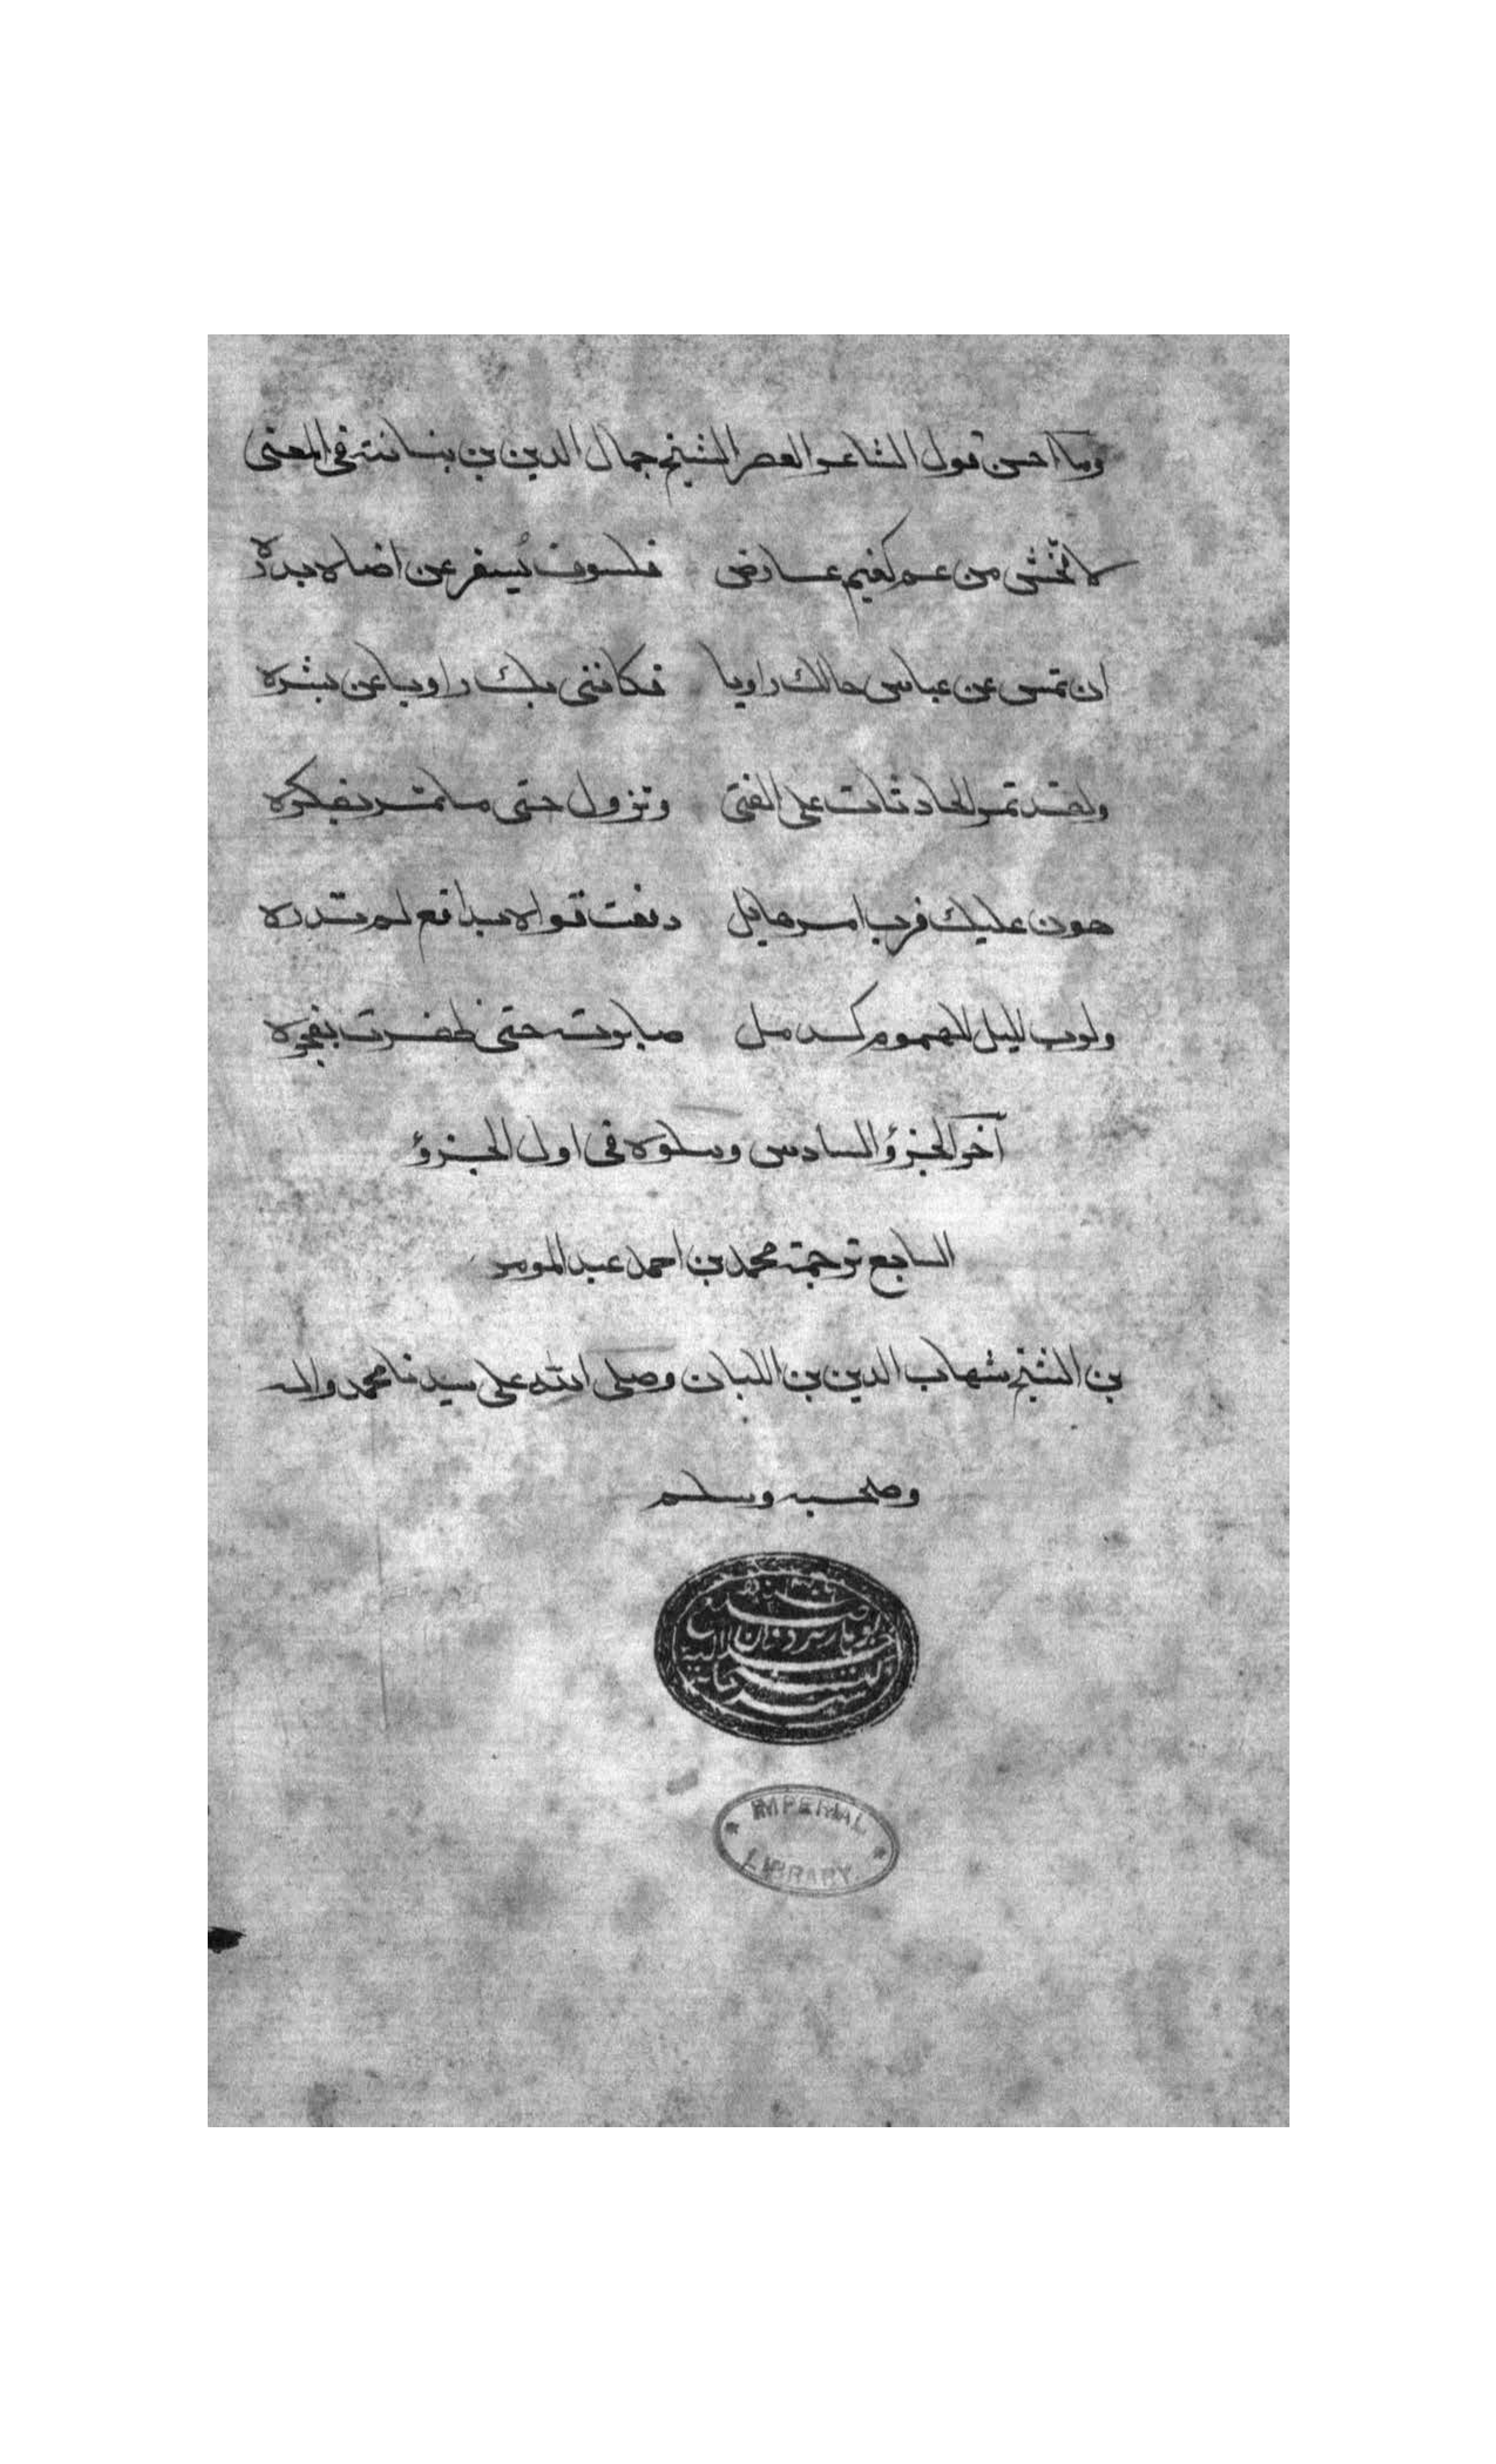 وما احسن قول الشاعر العصر الشيخ جمال الدين بن بنباتة في المعنى
لا تخش من غم كغيم عارض فلسوف يُسفر عن اضاه بدرة
ان تمس عن عباس حالك راويا فكانني بك راويا عن بشره
ولقد تمر الحادثات على الفتى وتزول حتى ما تمر بفكره
هون عليك فرب امر هايل دفعت قواه بدافع لم تدره
ولرب ليل للهموم كدمل صابرته حتى ظفرت بفجره
آخر الجزؤ السادس ويتلوه في اول الجزؤ
السابع ترجمة محمد بن احمد عبد المومن
بن الشيخ شهاب الدين بن اللبان وصلى الله على سيدنا محمد واله
وصحبه وسلم
IMPERIAL
LIBRARY